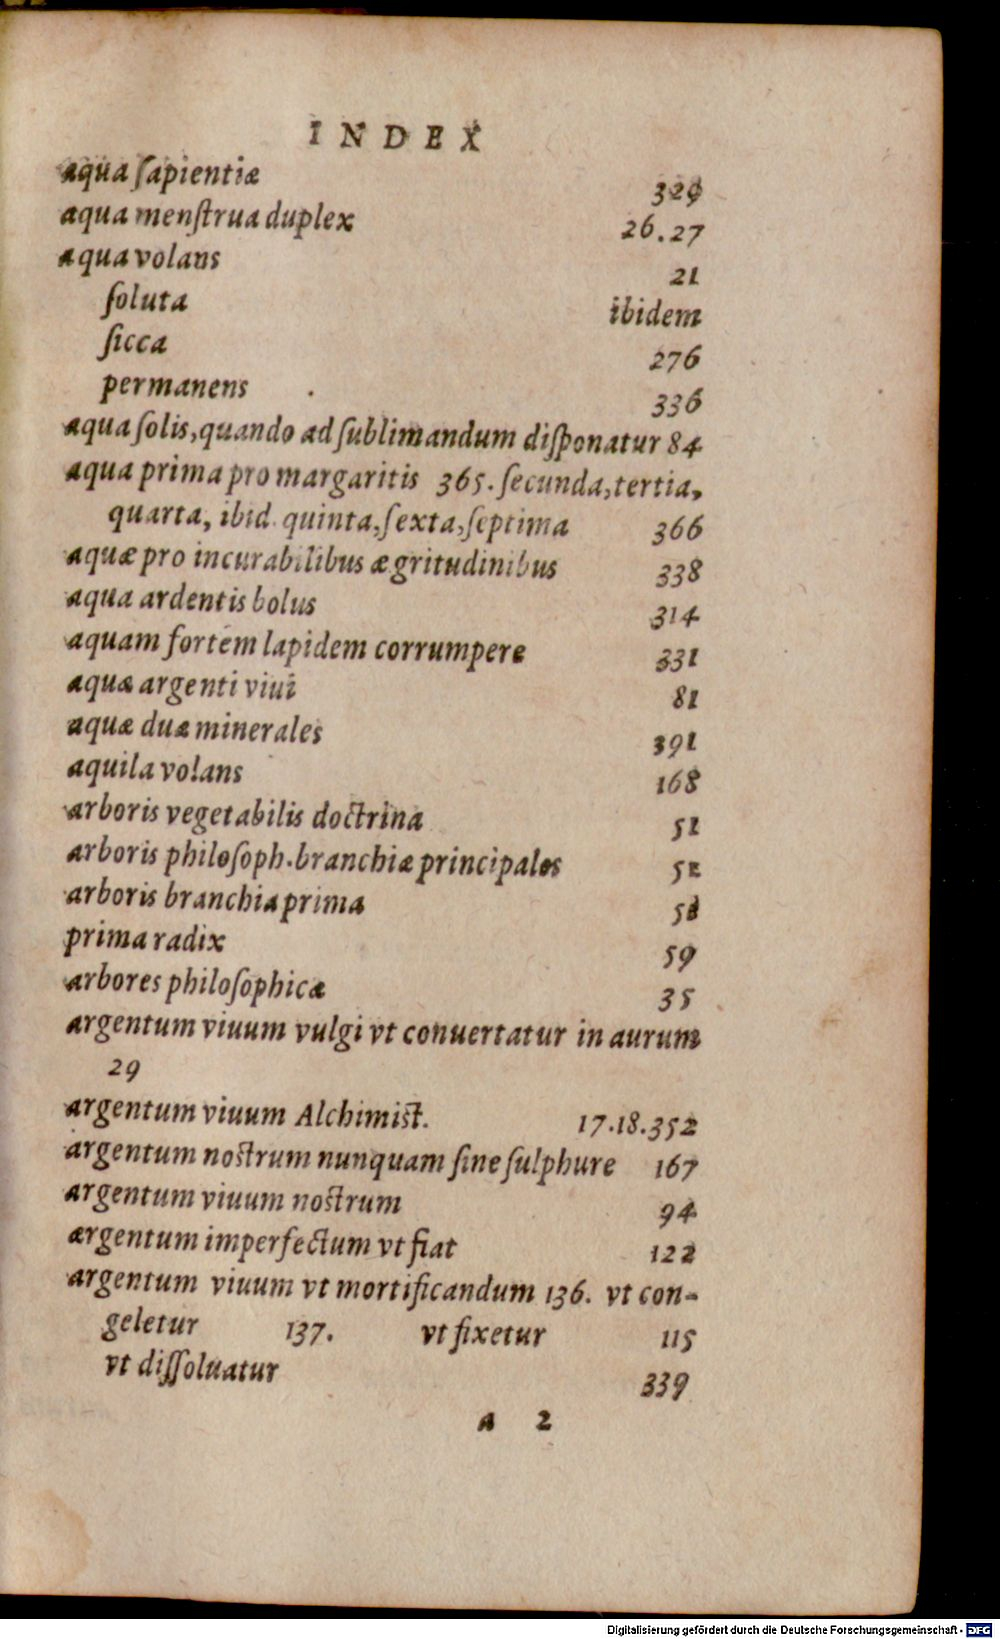 INDEX
aqua ſapientiæ 329
aqua menſtrua duplex 26.27
aqua volans 21
ſoluta ibidem
ſicca 276
permanens 336
aqua ſolis, quando ad ſublimandum diſponatur 84
aqua prima pro margaritis 365. ſecunda, tertia,
quarta, ibid. quinta, ſexta, ſeptima 366
aquæ pro incurabilibus ægritudinibus 338
aqua ardentis bolus 314
aquam fortem lapidem corrumpere 331
aquæ argenti viui 81
aquæ duæ minerales 391
aquila volans 168
arboris vegetabilis doctrina 51
arboris philoſoph. branchiæ principales
arboris branchia prima
prima radix 59
arbores philoſophicæ 35
argentum viuum vulgi vt conuertatur in aurum
29
argentum viuum Alchimiſt. 17.18.352
argentum noſtrum nunquam ſine ſulphure 167
argentum viuum noſtrum 94
argentum imperfectum vt fiat 122
argentum viuum vt mortificandum 136. vt con-
geletur 137. vt fixetur 115
vt diſſoluatur 339
a 2
Digitalisierung gefördert durch die Deutsche Forschungsgemeinschaft - DFG